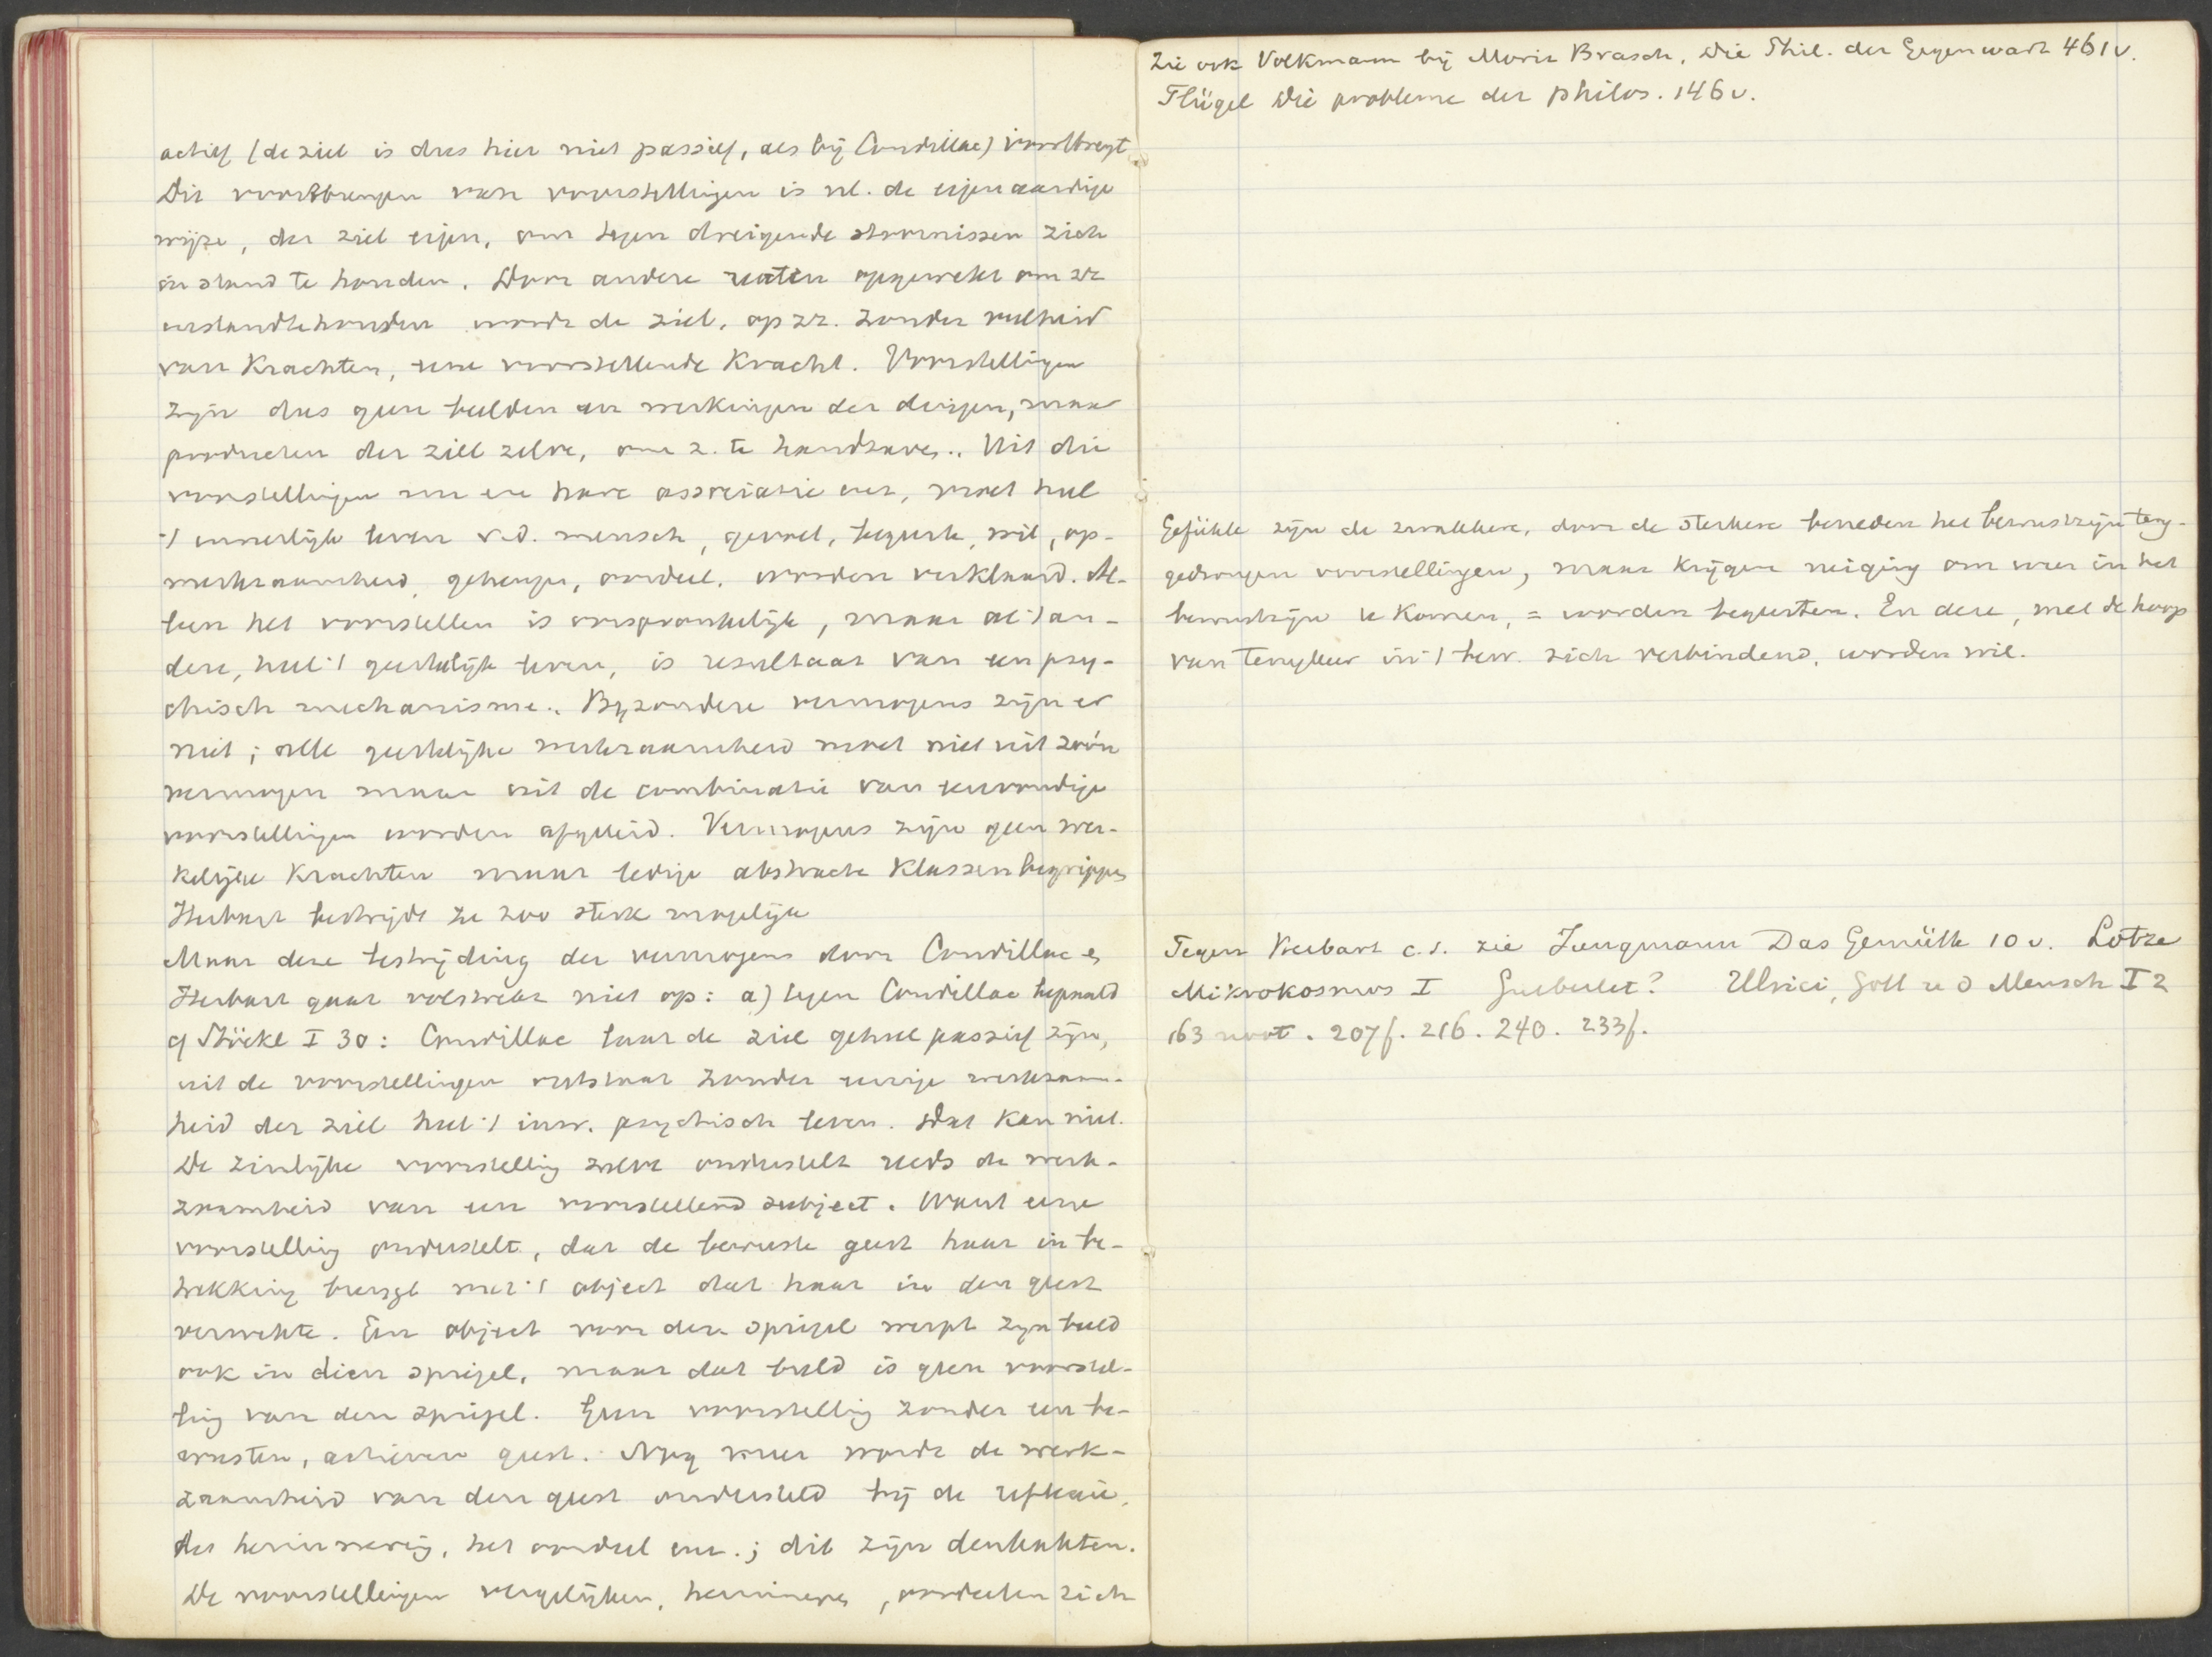 actief (de ziel is dus hier niet passief, als bij Condillac) voortbrengt
Dit voortbrengen van voorstellingen is nl. de eigenaardige
wijze, der ziel eigen, om tegen dreigende stoornissen zich
in stand te houden. Door andere realen opgewekt om zr
instandtehouden wordt de ziel, op zz. zonder veelheid
van Krachten, eene voorstellende Kracht. Voorstellingen
zijn dus geen beelden en werkingen der dingen, maar
producten der ziel zelve, om z. te handhaven. Uit die
voorstellingen nu en hare associatie enz, moet heel
't innerlijk leven v.d. mensch, gevoel, begeerte, wil, op-
merkzaamheid, geheugen, oordeel, worden verklaard. Al-
leen het voorstellen is oorspronkelijk, maar al 't an-
dere, heel 't geestelijk leven, is resultaat van een psy-
chisch mechanisme. Byzondere vermogens zijn er
niet; alle geestelijke werkzaamheid moet niet uit zoo'n
vermogen maar uit de combinatie van eenvoudige
voorstellingen worden afgeleid. Vermogens zijn geen wer-
kelijke Krachten maar ledige abstracte Klassenbegrippen
Herbart bestrijdt ze zoo sterk mogelijk
Maar deze bestrijding der vermogens door Condillac en
Herbart gaat volstrekt niet op: a) tegen Condillac bepaald
cf Stöckl I 30: Condillac laat de ziel geheel passief zijn,
uit de voorstellingen ontstaat zonder eenige werkzaam-
heid der ziel heel 't inw. psychisch leven. Dat kan niet.
De zinlijke voorstelling zelve onderstelt reeds de werk-
zaamheid van een voorstellend subject. Want eene
voorstelling onderstelt, dat de bewuste geest haar in be-
trekking brengt met 't object dat haar in den geest
verwekte. Een object voor den spiegel werpt zijn beeld
ook in dien spiegel, maar dat beeld is geen voorstel-
ling van den spiegel. Geen voorstelling zonder een be-
wusten, actieven geest. Nog meer wordt de werk-
zaamheid van den geest ondersteld bij de reflexie,
de herinnering, het oordeel enz.; dit zijn denkakten.
De voorstellingen vergelijken, herinneren, oordeelen zich
Zie ook Volkmann bij Moriz Brasch, Die Phil. der Gegenwart 461 v.
Flügel Die probleme der philos. 146 v.
Gefühle zijn de zwakkere, door de sterkere beneden het bewustzijn terug-
gedrongen voorstellingen, maar krijgen neiging om weer in het
bewustzijn te Komen, = worden begeerten. En deze, met de hoop
van terugkeer in 't bew. zich verbindend, worden wil.
Tegen Herbart c.s. zie Jungmann Das Gemüth 10 v. Lotze
Mikrokosmos I Gutberlet? Ulrici, Gott u d Mensch I 2
163 noot. 207f. 216. 240. 233f.